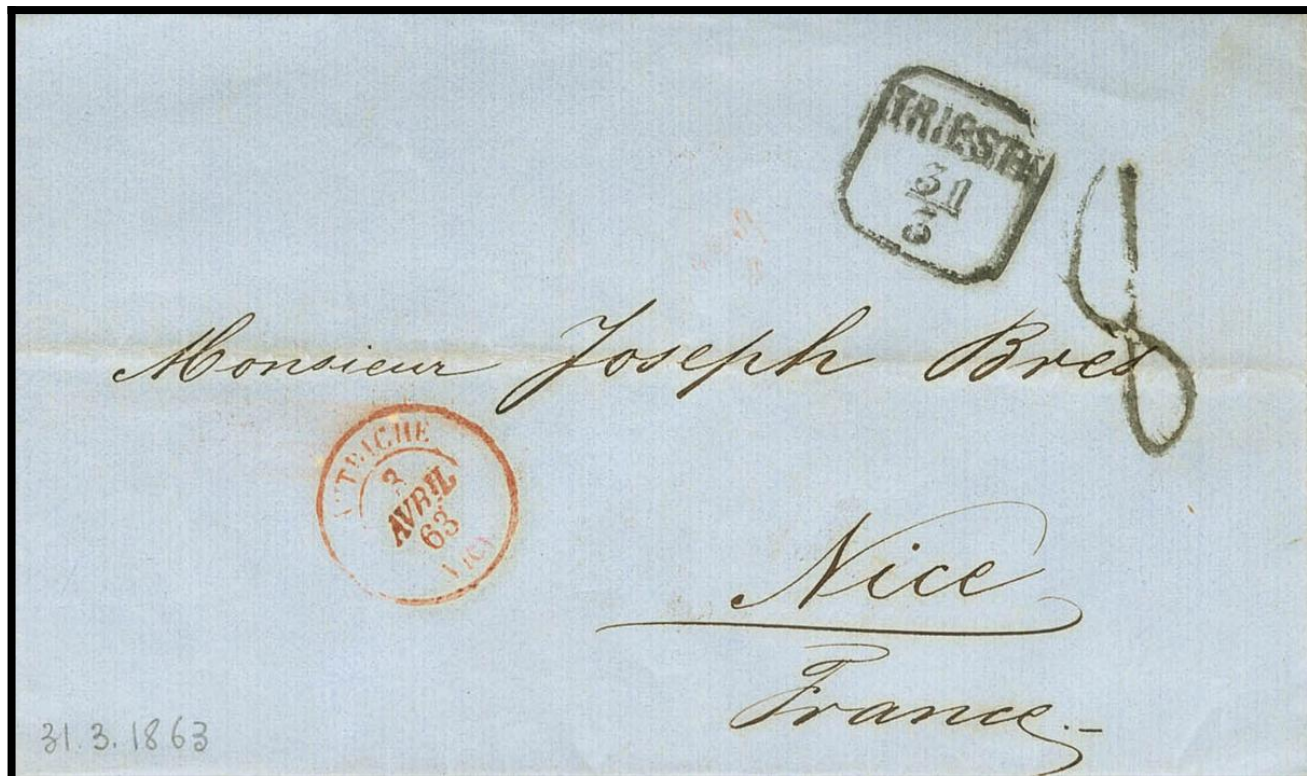 TRIESTE
31
3
8
Monsieur Joseph Brès
AUTRICHE
3
AVRIL
63
Nice
France.-
31.3.1863